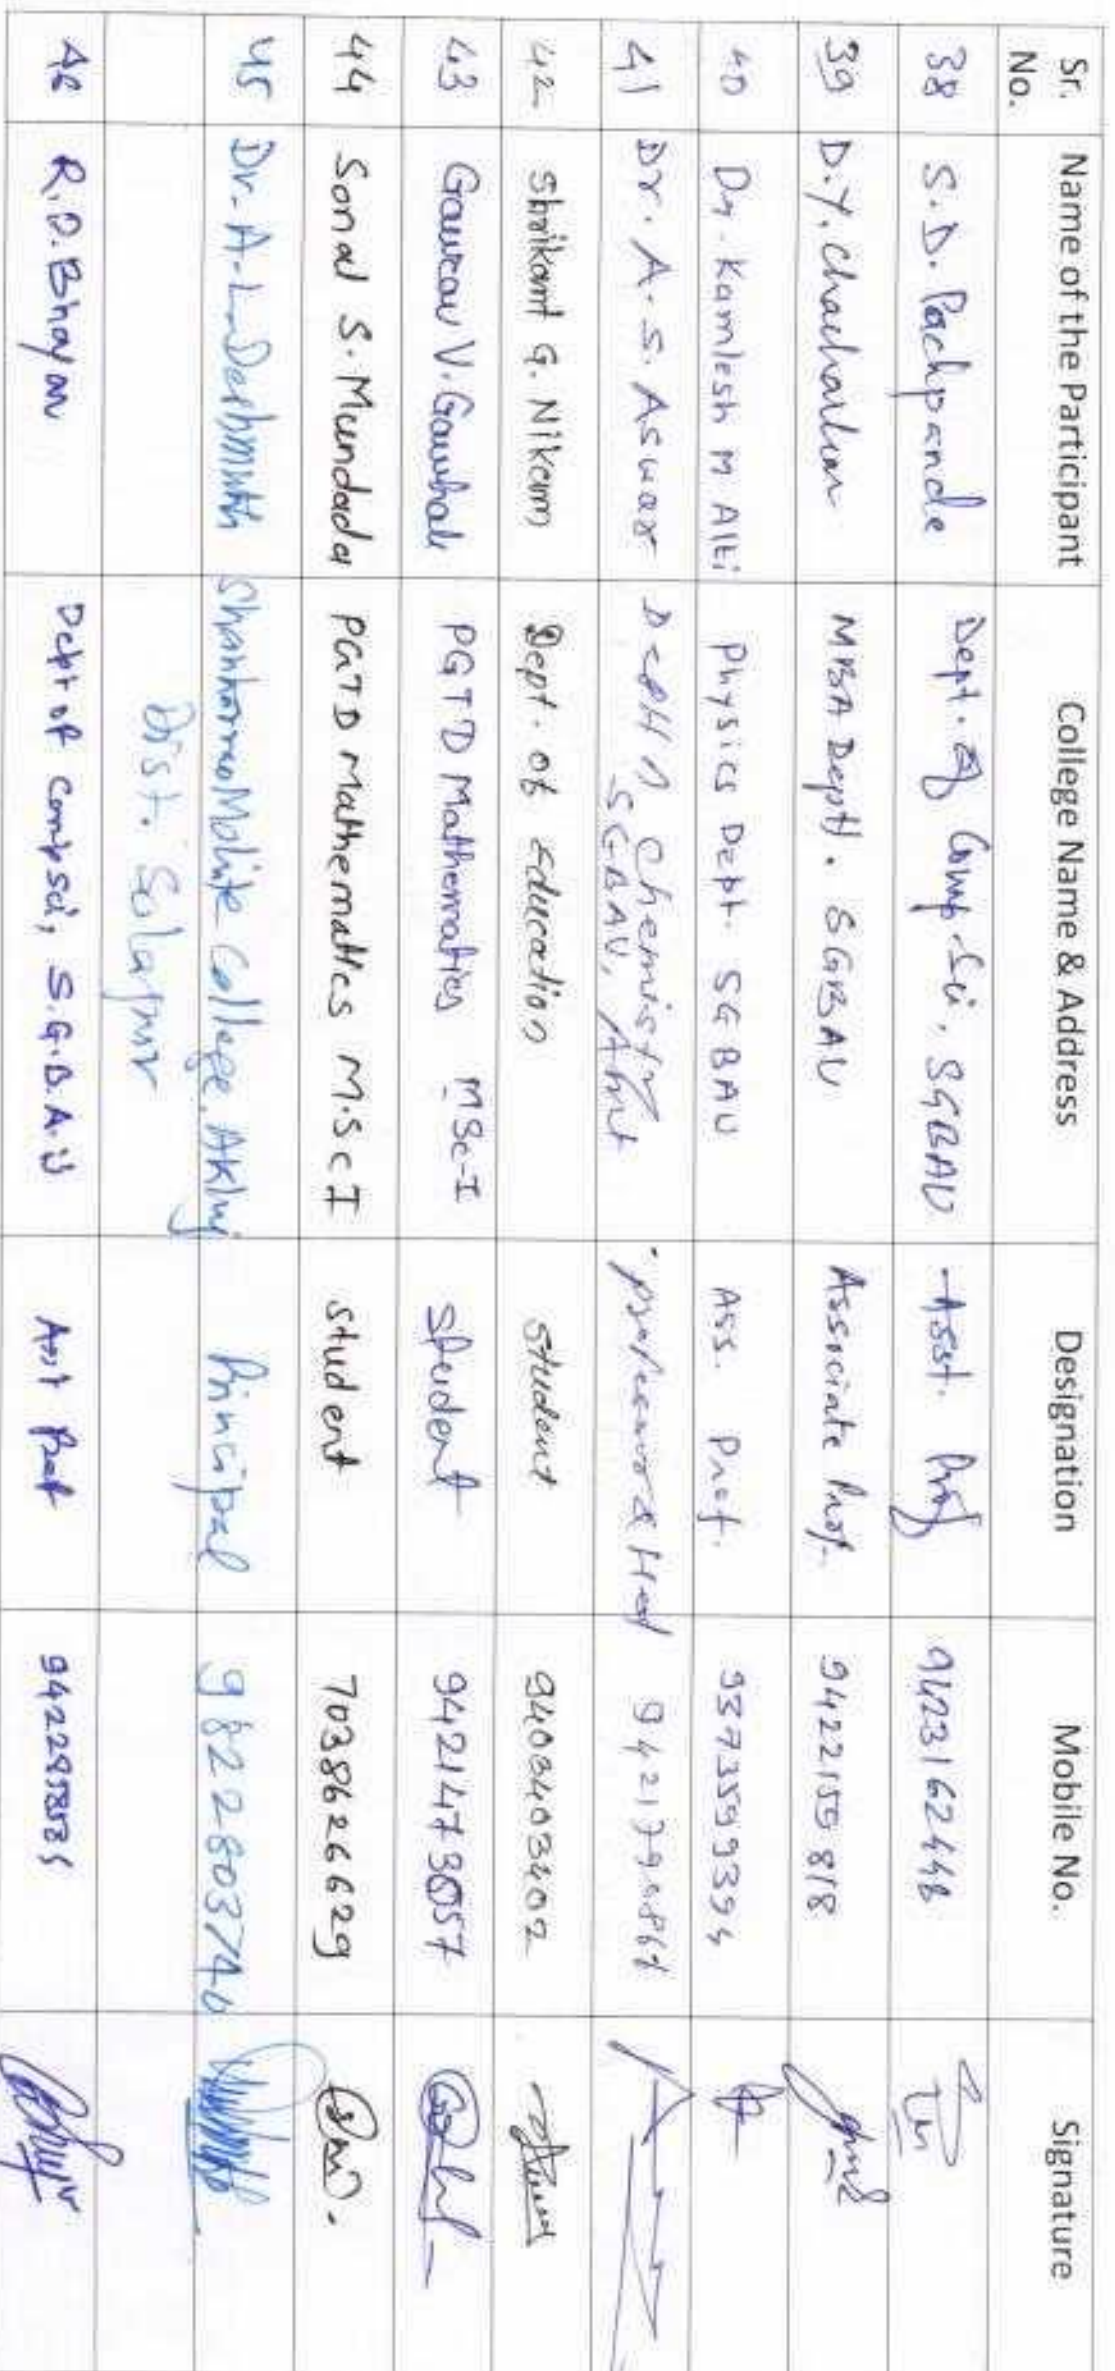 Sr. No. Name of the Participant College Name & Address Designation Mobile No. Signature
38 S. D. Pachpande Dept. of Comp. Sci, SGBAU Asst. Prof 9423162448
39 D. Y. Chacharkar MBA Deptt. SGBAU Associate Prof. 9422155818
40 Dr. Kamlesh M Alti Physics Dept. SGBAU Ass. Prof. 9373599394
41 Dr. A. S. Aswar Chemistry
SGBAU, Amt
42 Shrikant G. Nikam Dept. of Education Student 9403403402
43 Gaurav V. Gawhale PGTD Mathematics MSc-I Student
44 Sonal S. Mundada PGTD Mathematics M.Sc I student 7038626629
45 Dr. A. L. Deshmukh Shankarrao Mohite College, Akluj Principal
Dist. Solapur
46 R. D. Bhoyar Dept of Comp sci, S.G.B.A.U Asst Prof